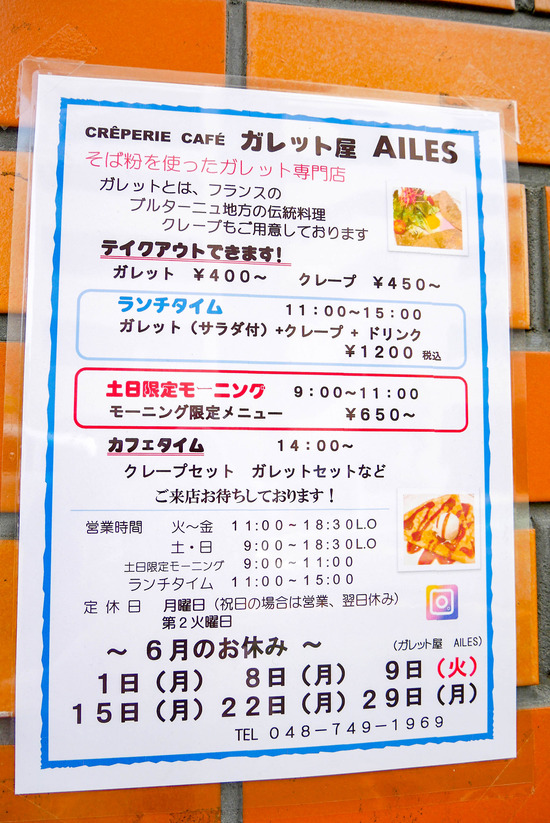 CRÊPERIE CAFÉ ガレット屋 AILES
そば粉を使ったガレット専門店
ガレットとは、フランスの
ブルターニュ地方の伝統料理
クレープもご用意しております
テイクアウトできます!
ガレット ￥400～ クレープ ￥450～
ランチタイム 11:00～15:00
ガレット（サラダ付）+クレープ + ドリンク
￥1200 税込
土日限定モーニング 9:00～11:00
モーニング限定メニュー ￥650～
カフェタイム 14:00～
クレープセット ガレットセットなど
ご来店お待ちしております！
営業時間 火～金 11:00～18:30L.O
土・日 9:00～18:30L.O
土日限定モーニング 9:00～11:00
ランチタイム 11:00～15:00
定休日 月曜日（祝日の場合は営業、翌日休み）
第２火曜日
～ 6月のお休み ～
（ガレット屋 AILES）
1日（月） 8日（月） 9日（火）
15日（月）22日（月）29日（月）
TEL 048-749-1969